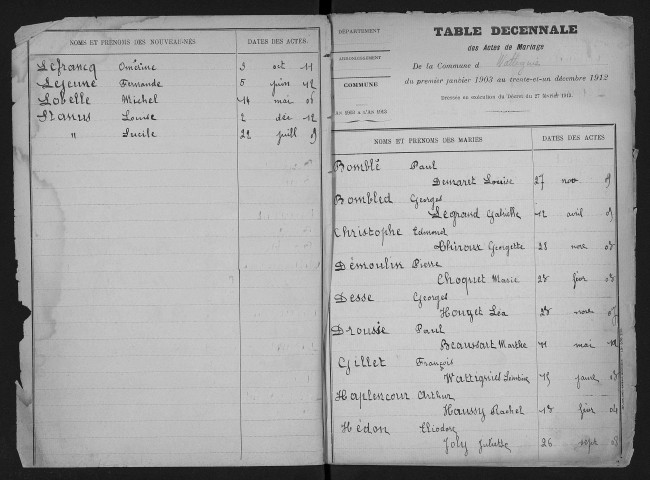 NOMS ET PRÉNOMS DES NOUVEAU-NÉS DATES DES ACTES.
Lefrancq Omérine 3 oct 11
Lejeune Fernande 5 juin 12
Lobelle Michel 14 mai 05
Stanus Louise 2 déc 12
" Lucile 22 juill 9
DÉPARTEMENT
ARRONDISSEMENT
COMMUNE
TABLE DECENNALE
des Actes de Mariage
De la Commune d
du premier janvier 1903 au trente-et-un décembre 1912
Dressée en exécution du Décret du 27 février 1913.
NOMS ET PRÉNOMS DES MARIÉS DATES DES ACTES
Bomblé Paul
Demaret Louise 27 nov 9
Bombled Georges
Legrand Gabrielle 12 avril 9
Christophe Edmond
Lhiroux Georgette 28 nov
Démoulin Pierre
Choquet Marie 23 févr 03
Desse Georges
Houzet Léa 23 nov
Drousie Paul
Beaussart Marthe 11 mai 12
Gillet François
Wattigniel 15 janv
Haplencour Arthur
Haussy Rachel 13 févr 04
Hédon Cliodor
Joly Juliette 26 sept